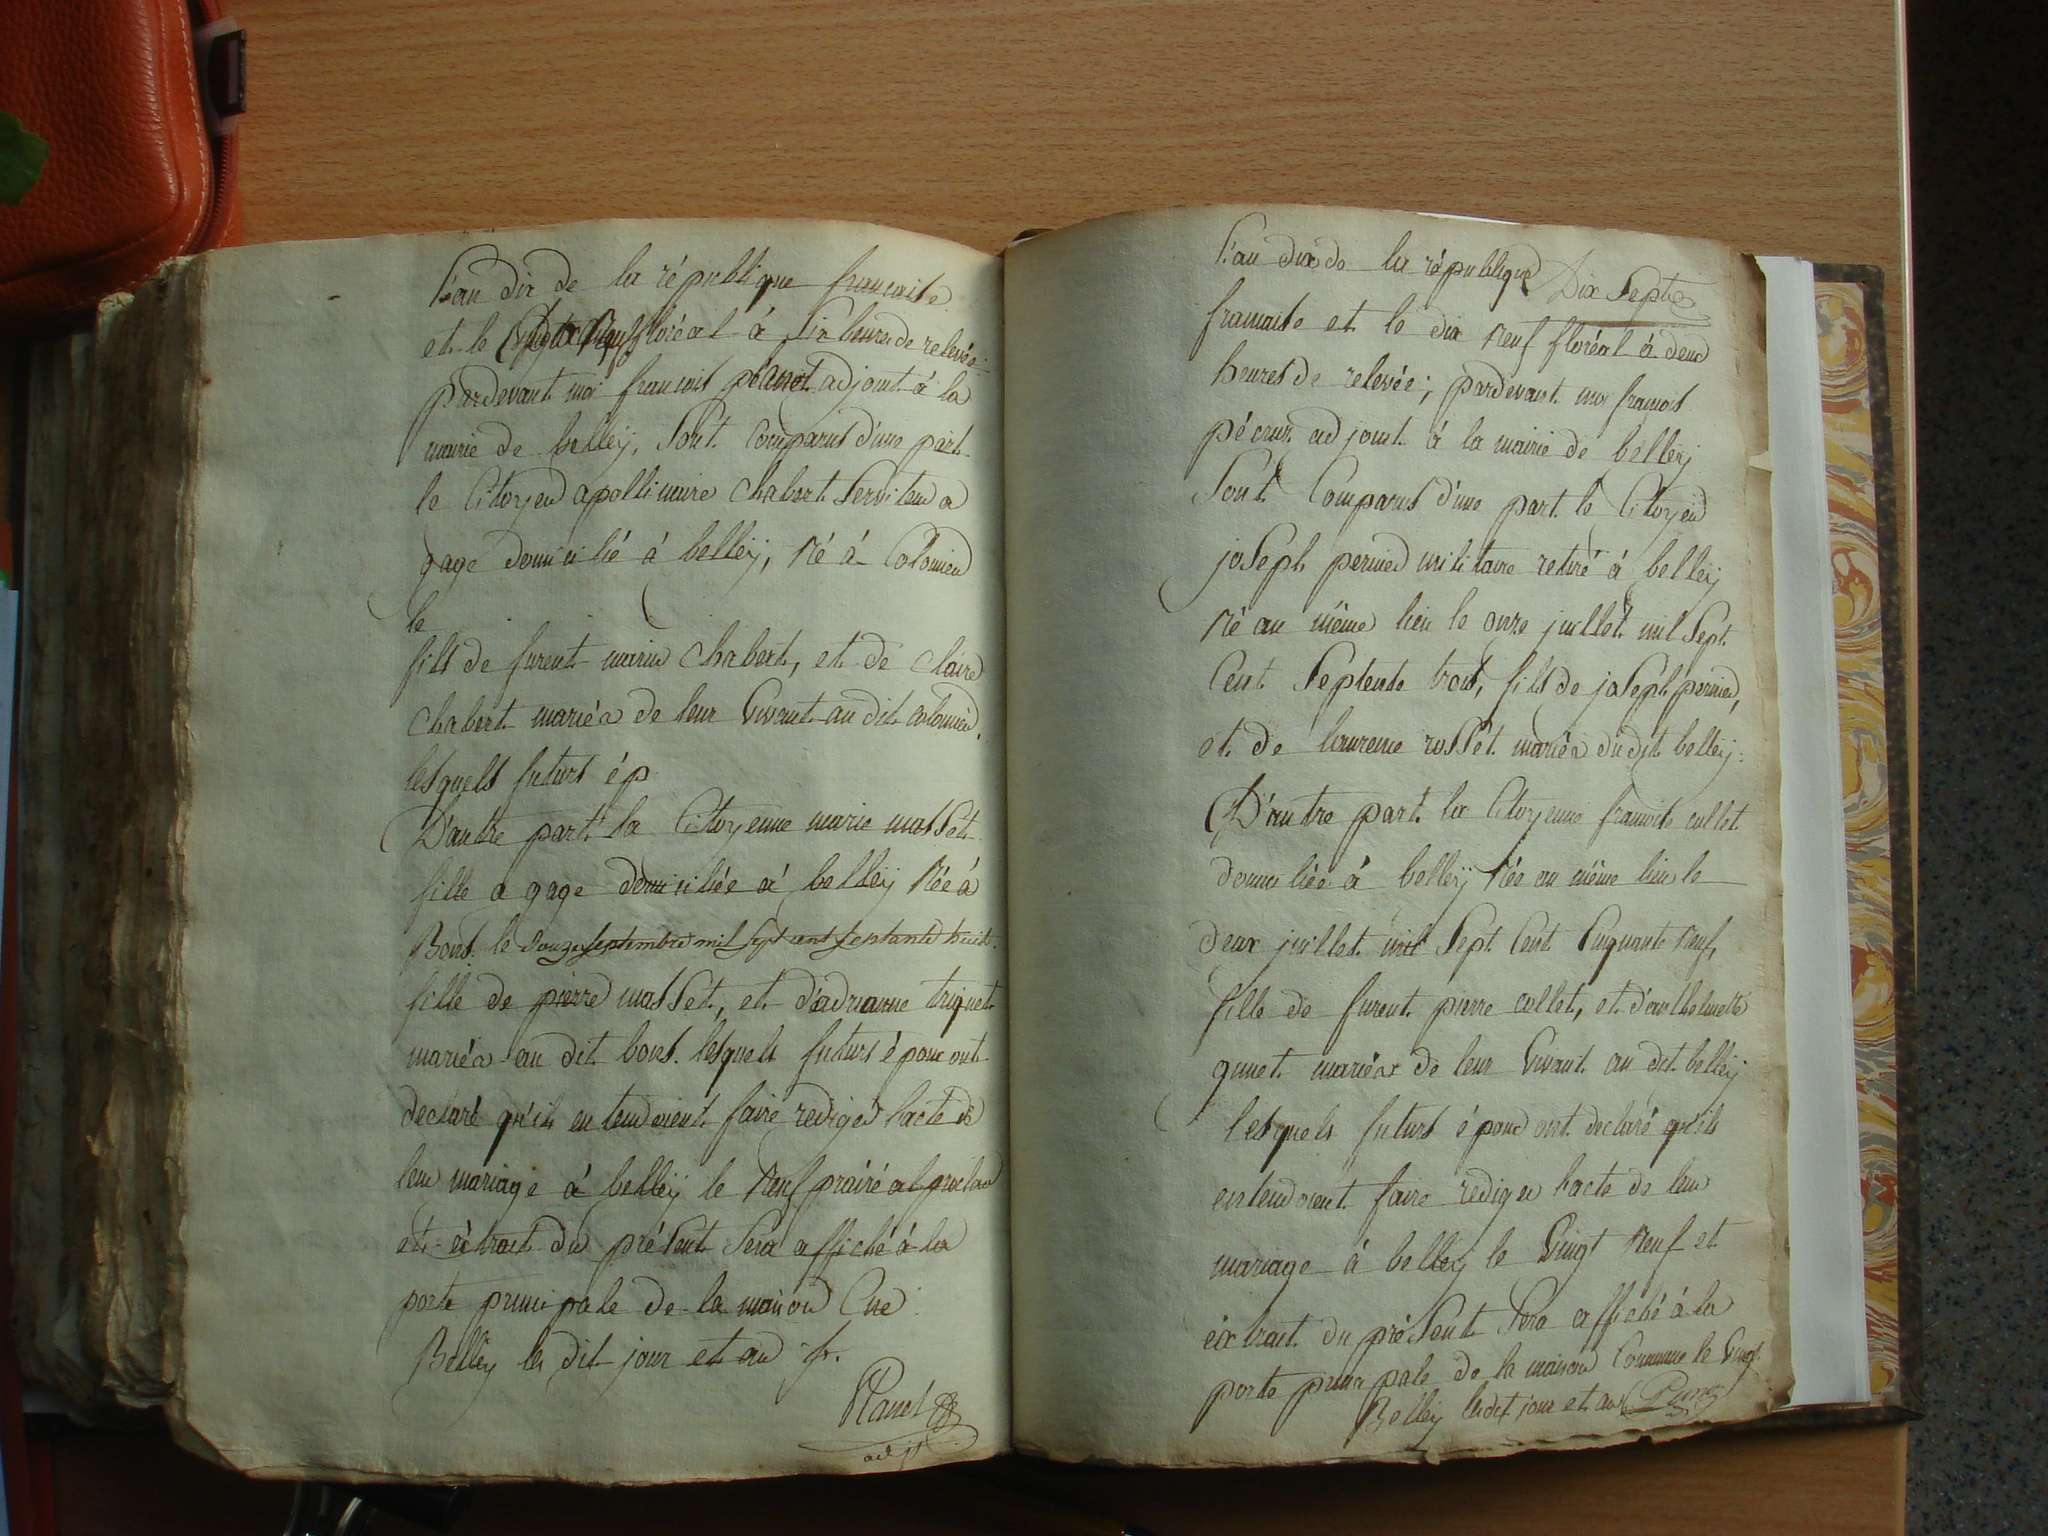 L'an dix de la république francaise
et le floréal à six heures de relevée
pardevant moi francois planet adjoint à la
mairie de belleÿ, sont comparus d'une part
le Citoyen apollinaire chabert serviteur a
gage domicilié à belleÿ, né à Colomieu
le
fils de furent marin Chabert, et de claire
chabert mariéa de leur vivant au dit colomieu,
lesquels futurs ép
D'autre part la Citoyenne marie masset
fille a gage domiciliée à belleÿ née à
Bons le douze septembre mil sept cent septante huit
fille de pierre masset, et d'adrianne triquet
mariéa au dit bons. lesquels futurs époux ont
declaré qu'ils entendoient faire rediger lacte de
leur mariage à belleÿ le neuf prairéal prochain
et extrait du présent sera affiché à la
porte principale de la maison Cne
Belleÿ les dit jour et an fr.
Planet
adjt
L'an dix de la république
Dix Sept
francaise et le dix neuf floréal à deux
heures de relevée; pardevant moi francois
adjoint à la mairie de belleÿ
sont Comparus d'une part le Citoyen
joseph perrier militaire retiré à belleÿ
né au même lieu le onze juillet mil sept
Cent septente trois, fils de joseph perrier,
et de laurence rosset mariéa du dit belleÿ.
D'autre part la Citoyenne francoise collet
domiciliée à belleÿ née au même lieu le
deux juillet mil sept Cent Cinquante neuf,
fille de furent pierre collet, et d'anthelmette
mariéa de leur vivant au dit belleÿ
lesquels futurs époux ont declaré qu'ils
entendoient faire rediger lacte de leur
mariage à belleÿ le vingt neuf et
extrait du présent sera affiché à la
porte principale de la maison Commune le vingt
Belleÿ les dit jour et an